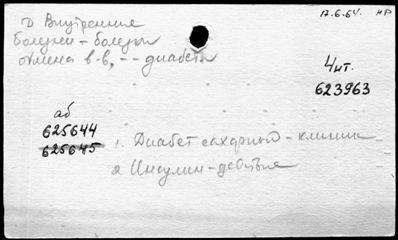 Д Внутренние
болезни - болезни
обмена в-в, -- диабет
17.6.64. НР
4 шт.
623963
аб
625644
625645
1. Диабет сахарный - клиника
2 Инсулин - действие